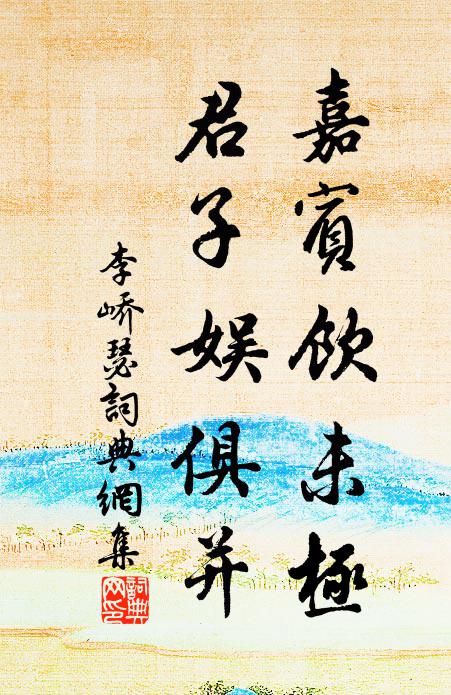 嘉賓飲未極
君子娛俱并
李嶠瑟詞典網集